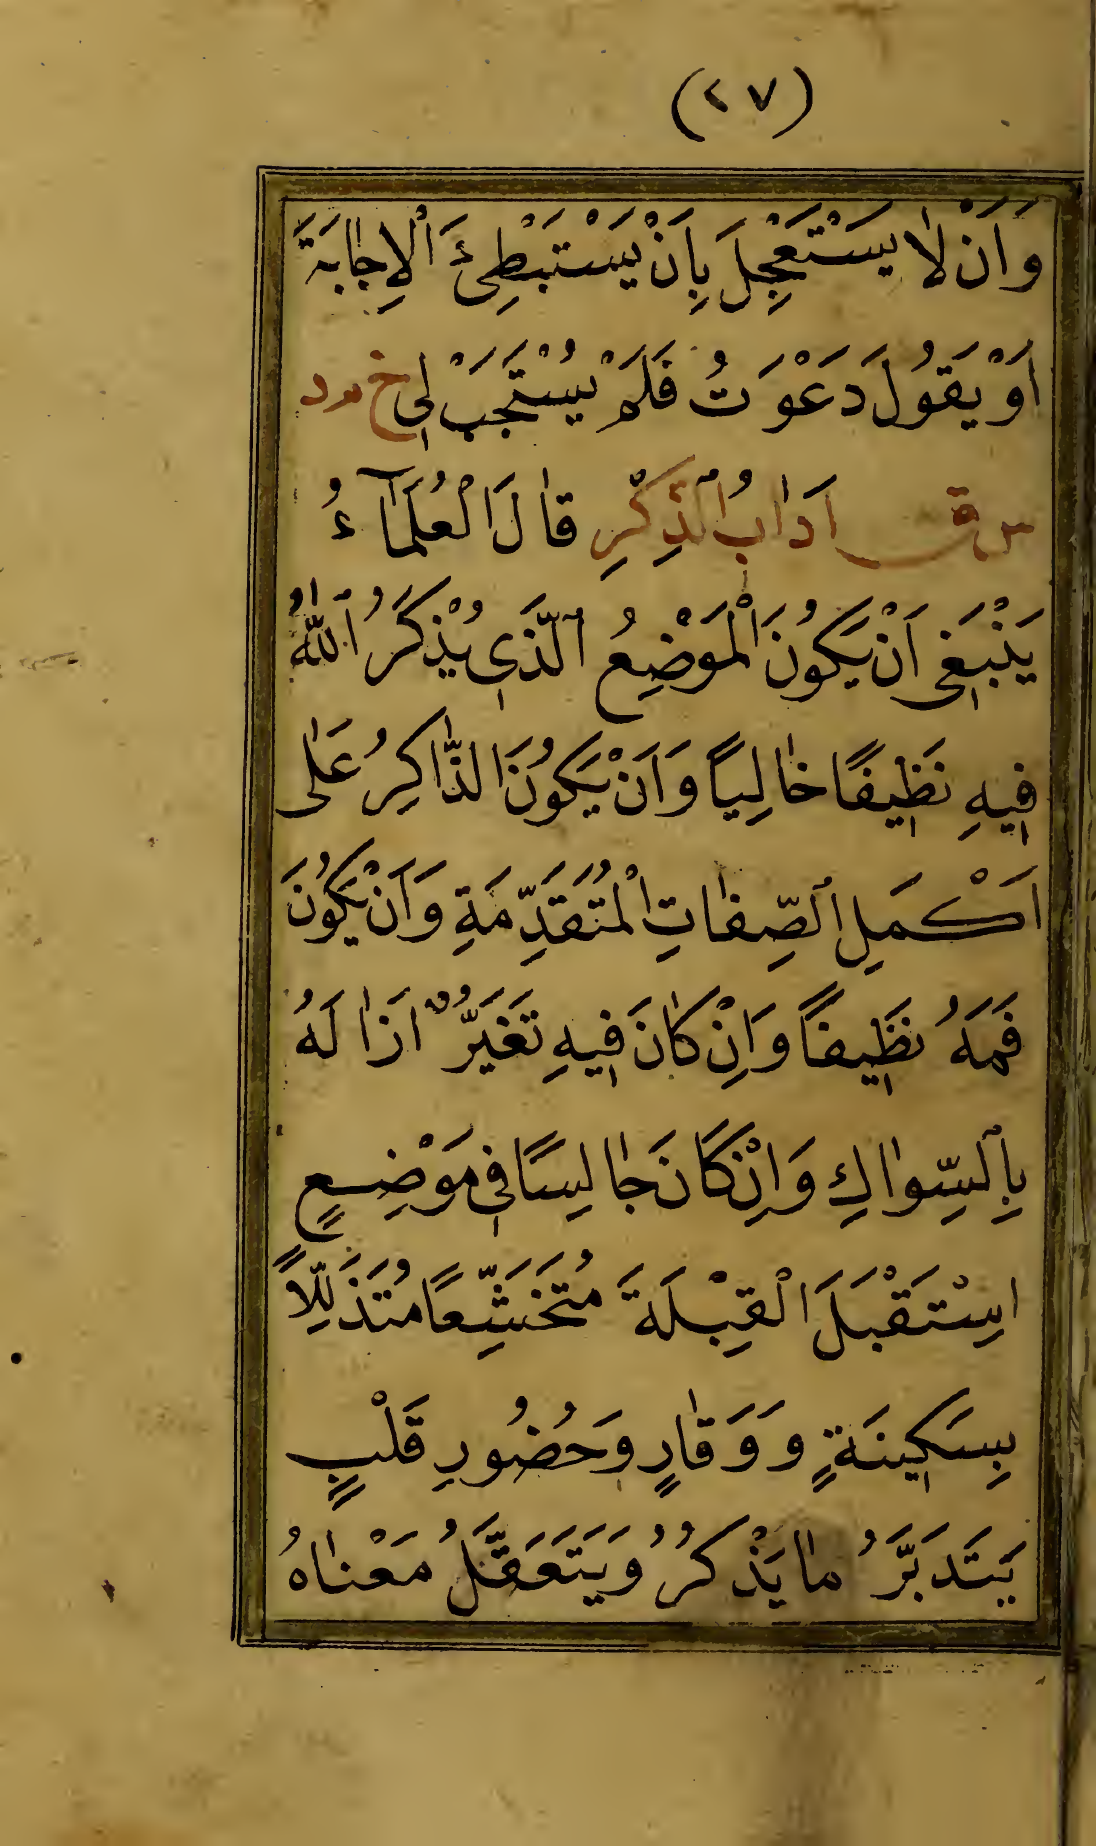 (٢٧)
وَاَنْ لَا يَسْتَعْجِلَ بِاَنْ يَسْتَبْطِئَ الْاِجَابَةَ
اَوْ يَقُولَ دَعَوْتُ فَلَمْ يُسْتَجَبْ لِى خ م د
س ق اٰدَابُ الذِّكْرِ قَالَ الْعُلَمَاۤءُ
يَنْبَغِى اَنْ يَكُونَ الْمَوْضِعُ الَّذِى يُذْكَرُ اللّٰهُ
فِيهِ نَظِيفًا خَالِيًا وَاَنْ يَكُونَ الذَّاكِرُ عَلٰى
اَكْمَلِ الصِّفَاتِ الْمُتَقَدِّمَةِ وَاَنْ يَكُونَ
فَمُهُ نَظِيفًا وَاِنْ كَانَ فِيهِ تَغَيُّرٌ اَزَالَهُ
بِالسِّوَاكِ وَاِنْ كَانَ جَالِسًا فِى مَوْضِعٍ
اسْتَقْبَلَ الْقِبْلَةَ مُتَخَشِّعًا مُتَذَلِّلًا
بِسَكِينَةٍ وَوَقَارٍ وَحُضُورِ قَلْبٍ
يَتَدَبَّرُ مَا يَذْكُرُ وَيَتَعَقَّلُ مَعْنَاهُ